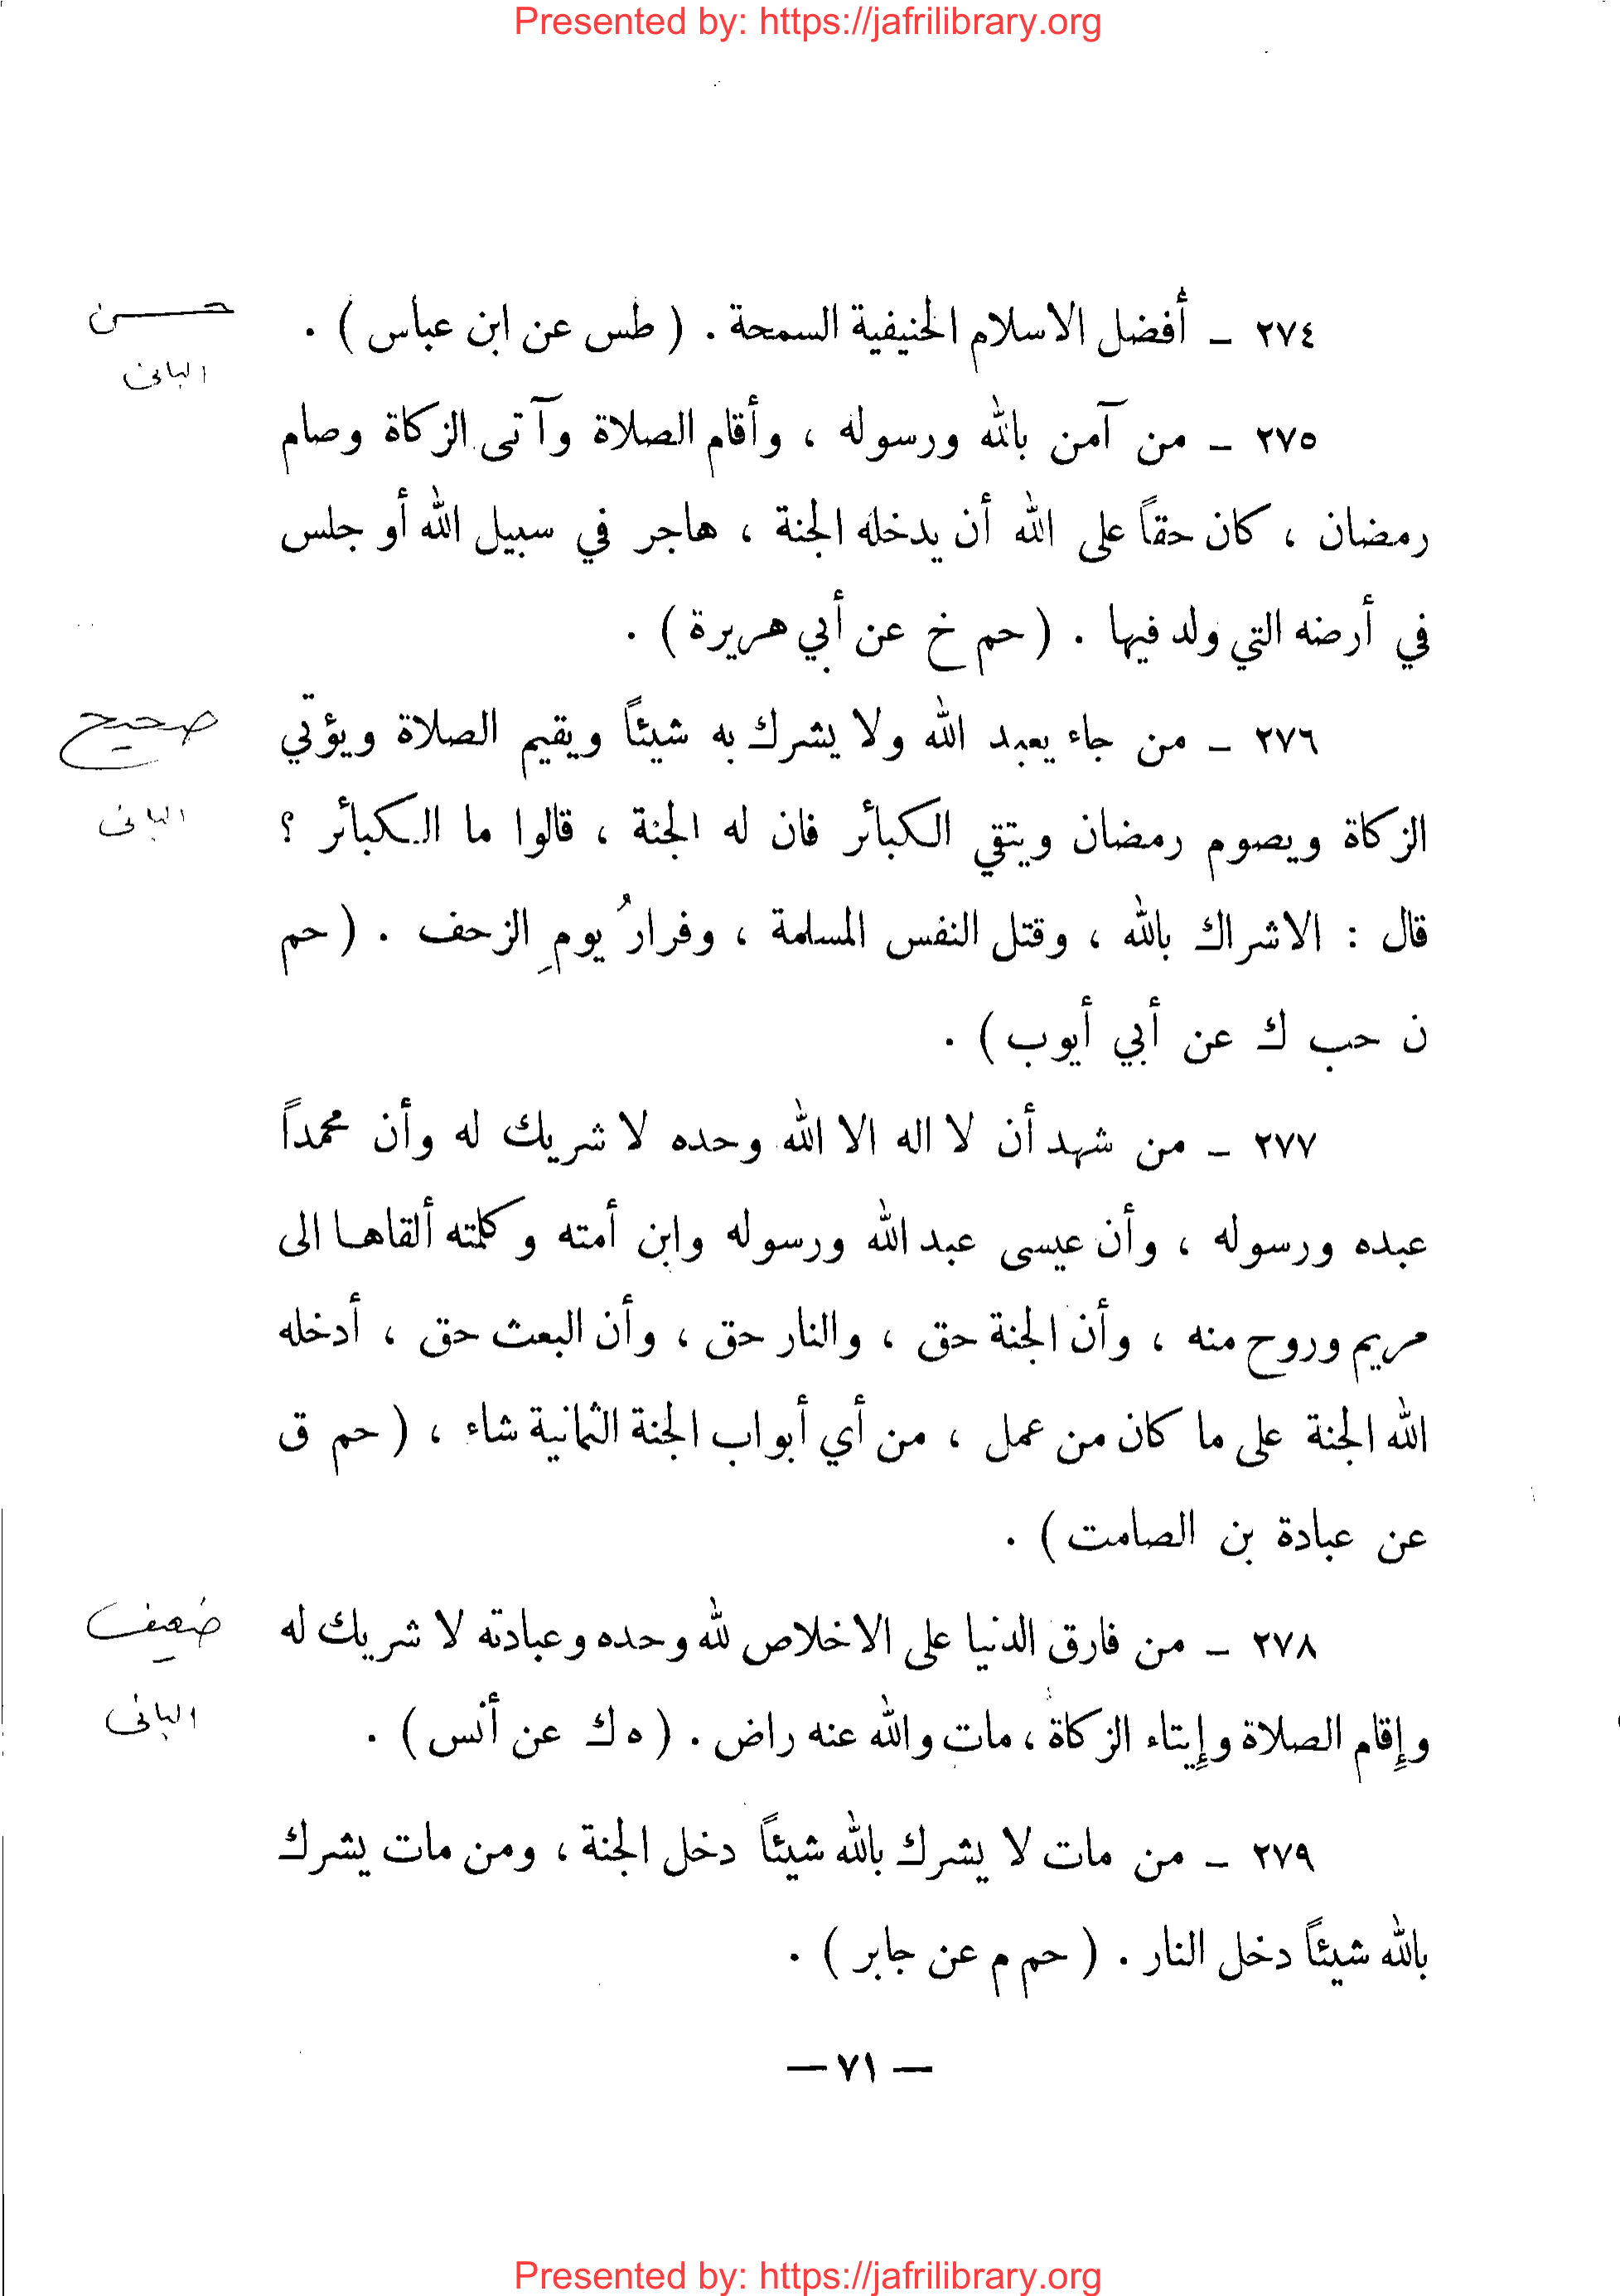 Presented by: https://jafrilibrary.org
٢٧٤ ــ أفضل الاسلام الحنيفية السمحة . ( طس عن ابن عباس ) .
حسن
البانى
٢٧٥ ــ من آمن بالله ورسوله ، وأقام الصلاة وآتى الزكاة وصام
رمضان ، كان حقاً على الله أن يدخله الجنة ، هاجر في سبيل الله أو جلس
في أرضه التي ولد فيها . ( حم خ عن أبي هريرة ) .
٢٧٦ ــ من جاء يعبد الله ولا يشرك به شيئاً ويقيم الصلاة ويؤتي
صحيح
الزكاة ويصوم رمضان ويتقي الكبائر فان له الجنة ، قالوا ما الكبائر ؟
البانى
قال : الاشراك بالله ، وقتل النفس المسلمة ، وفرارُ يومِ الزحف . ( حم
ن حب ك عن أبي أيوب ) .
٢٧٧ ــ من شهد أن لا اله الا الله وحده لا شريك له وأن محمداً
عبده ورسوله ، وأن عيسى عبد الله ورسوله وابن أمته وكلمته ألقاها الى
مريم وروح منه ، وأن الجنة حق ، والنار حق ، وأن البعث حق ، أدخله
الله الجنة على ما كان من عمل ، من أي أبواب الجنة الثمانية شاء ، ( حم ق
عن عبادة بن الصامت ) .
٢٧٨ ــ من فارق الدنيا على الاخلاص لله وحده وعبادته لا شريك له
ضعيف
وإقام الصلاة وإيتاء الزكاة ، مات والله عنه راض . ( ه ك عن أنس ) .
البانى
٢٧٩ ــ من مات لا يشرك بالله شيئاً دخل الجنة ، ومن مات يشرك
بالله شيئاً دخل النار . ( حم م عن جابر ) .
— ٧١ —
Presented by: https://jafrilibrary.org